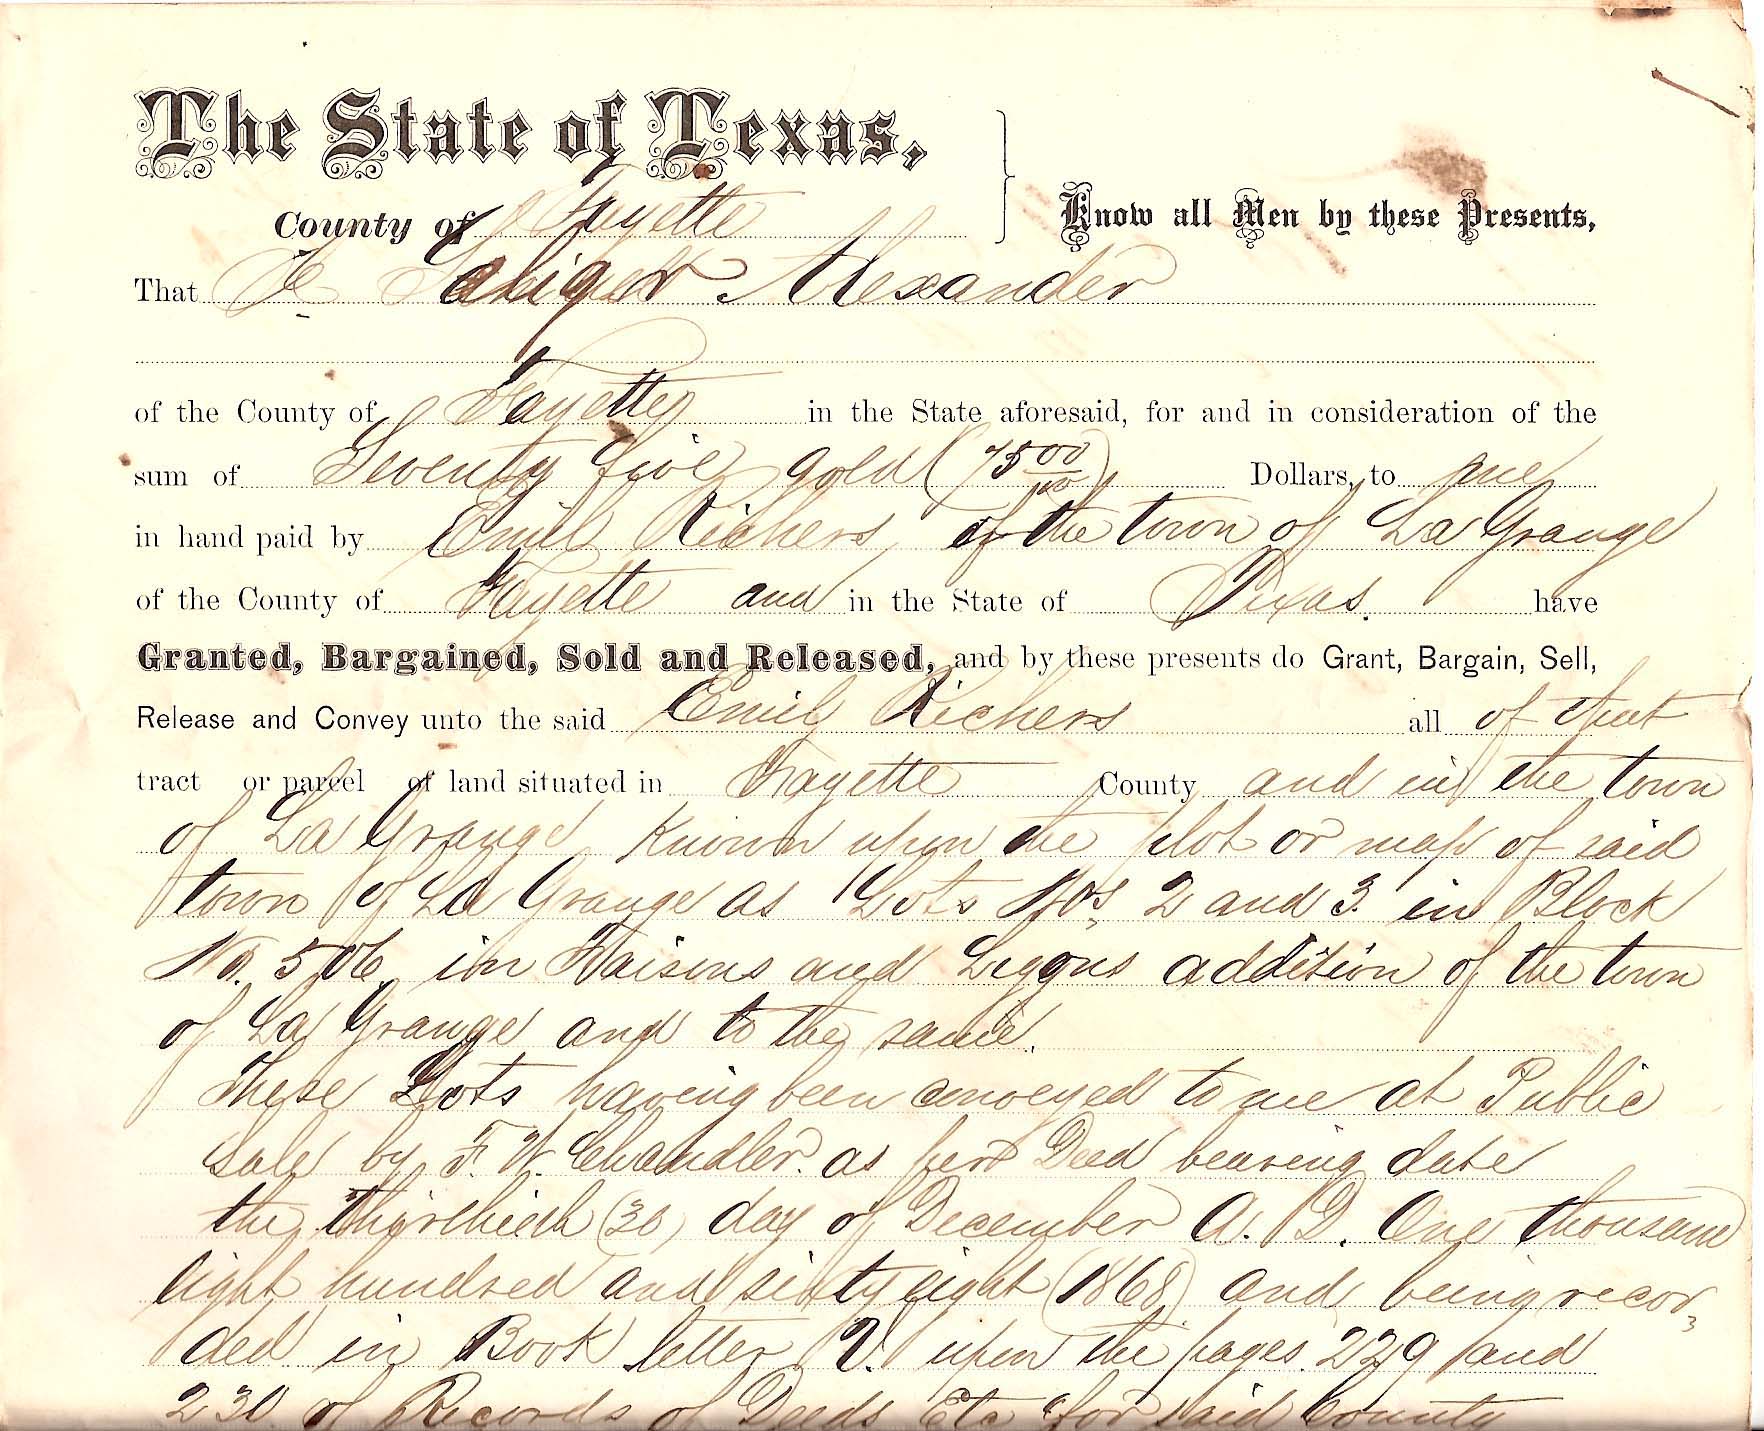 The State of Texas,
County of Fayette
Know all Men by these Presents,
That Alexander
of the County of Fayette in the State aforesaid, for and in consideration of the
sum of Seventy five gold (75 00/100) Dollars, to me
in hand paid by Emil Richers of the town of La Grange
of the County of Fayette and in the State of Texas. have
Granted, Bargained, Sold and Released, and by these presents do Grant, Bargain, Sell,
Release and Convey unto the said Emil Richers all of that
tract or parcel of land situated in Fayette County and in the town
of La Grange Known upon the plot or map of said
town of La Grange as Lots Nos, 2 and 3. in Block
No. 506 in and addition of the town
of La Grange and to the same.
These Lots having been conveyed to me at Public
Sale by F. W. Chandler. as per Deed bearing date
the (30) day of December A. D. One thousand
eight hundred and sixty eight (1868) and being recor
ded in Book letter V. upon the pages. 229 and
230 of Records of Deeds Etc for said County